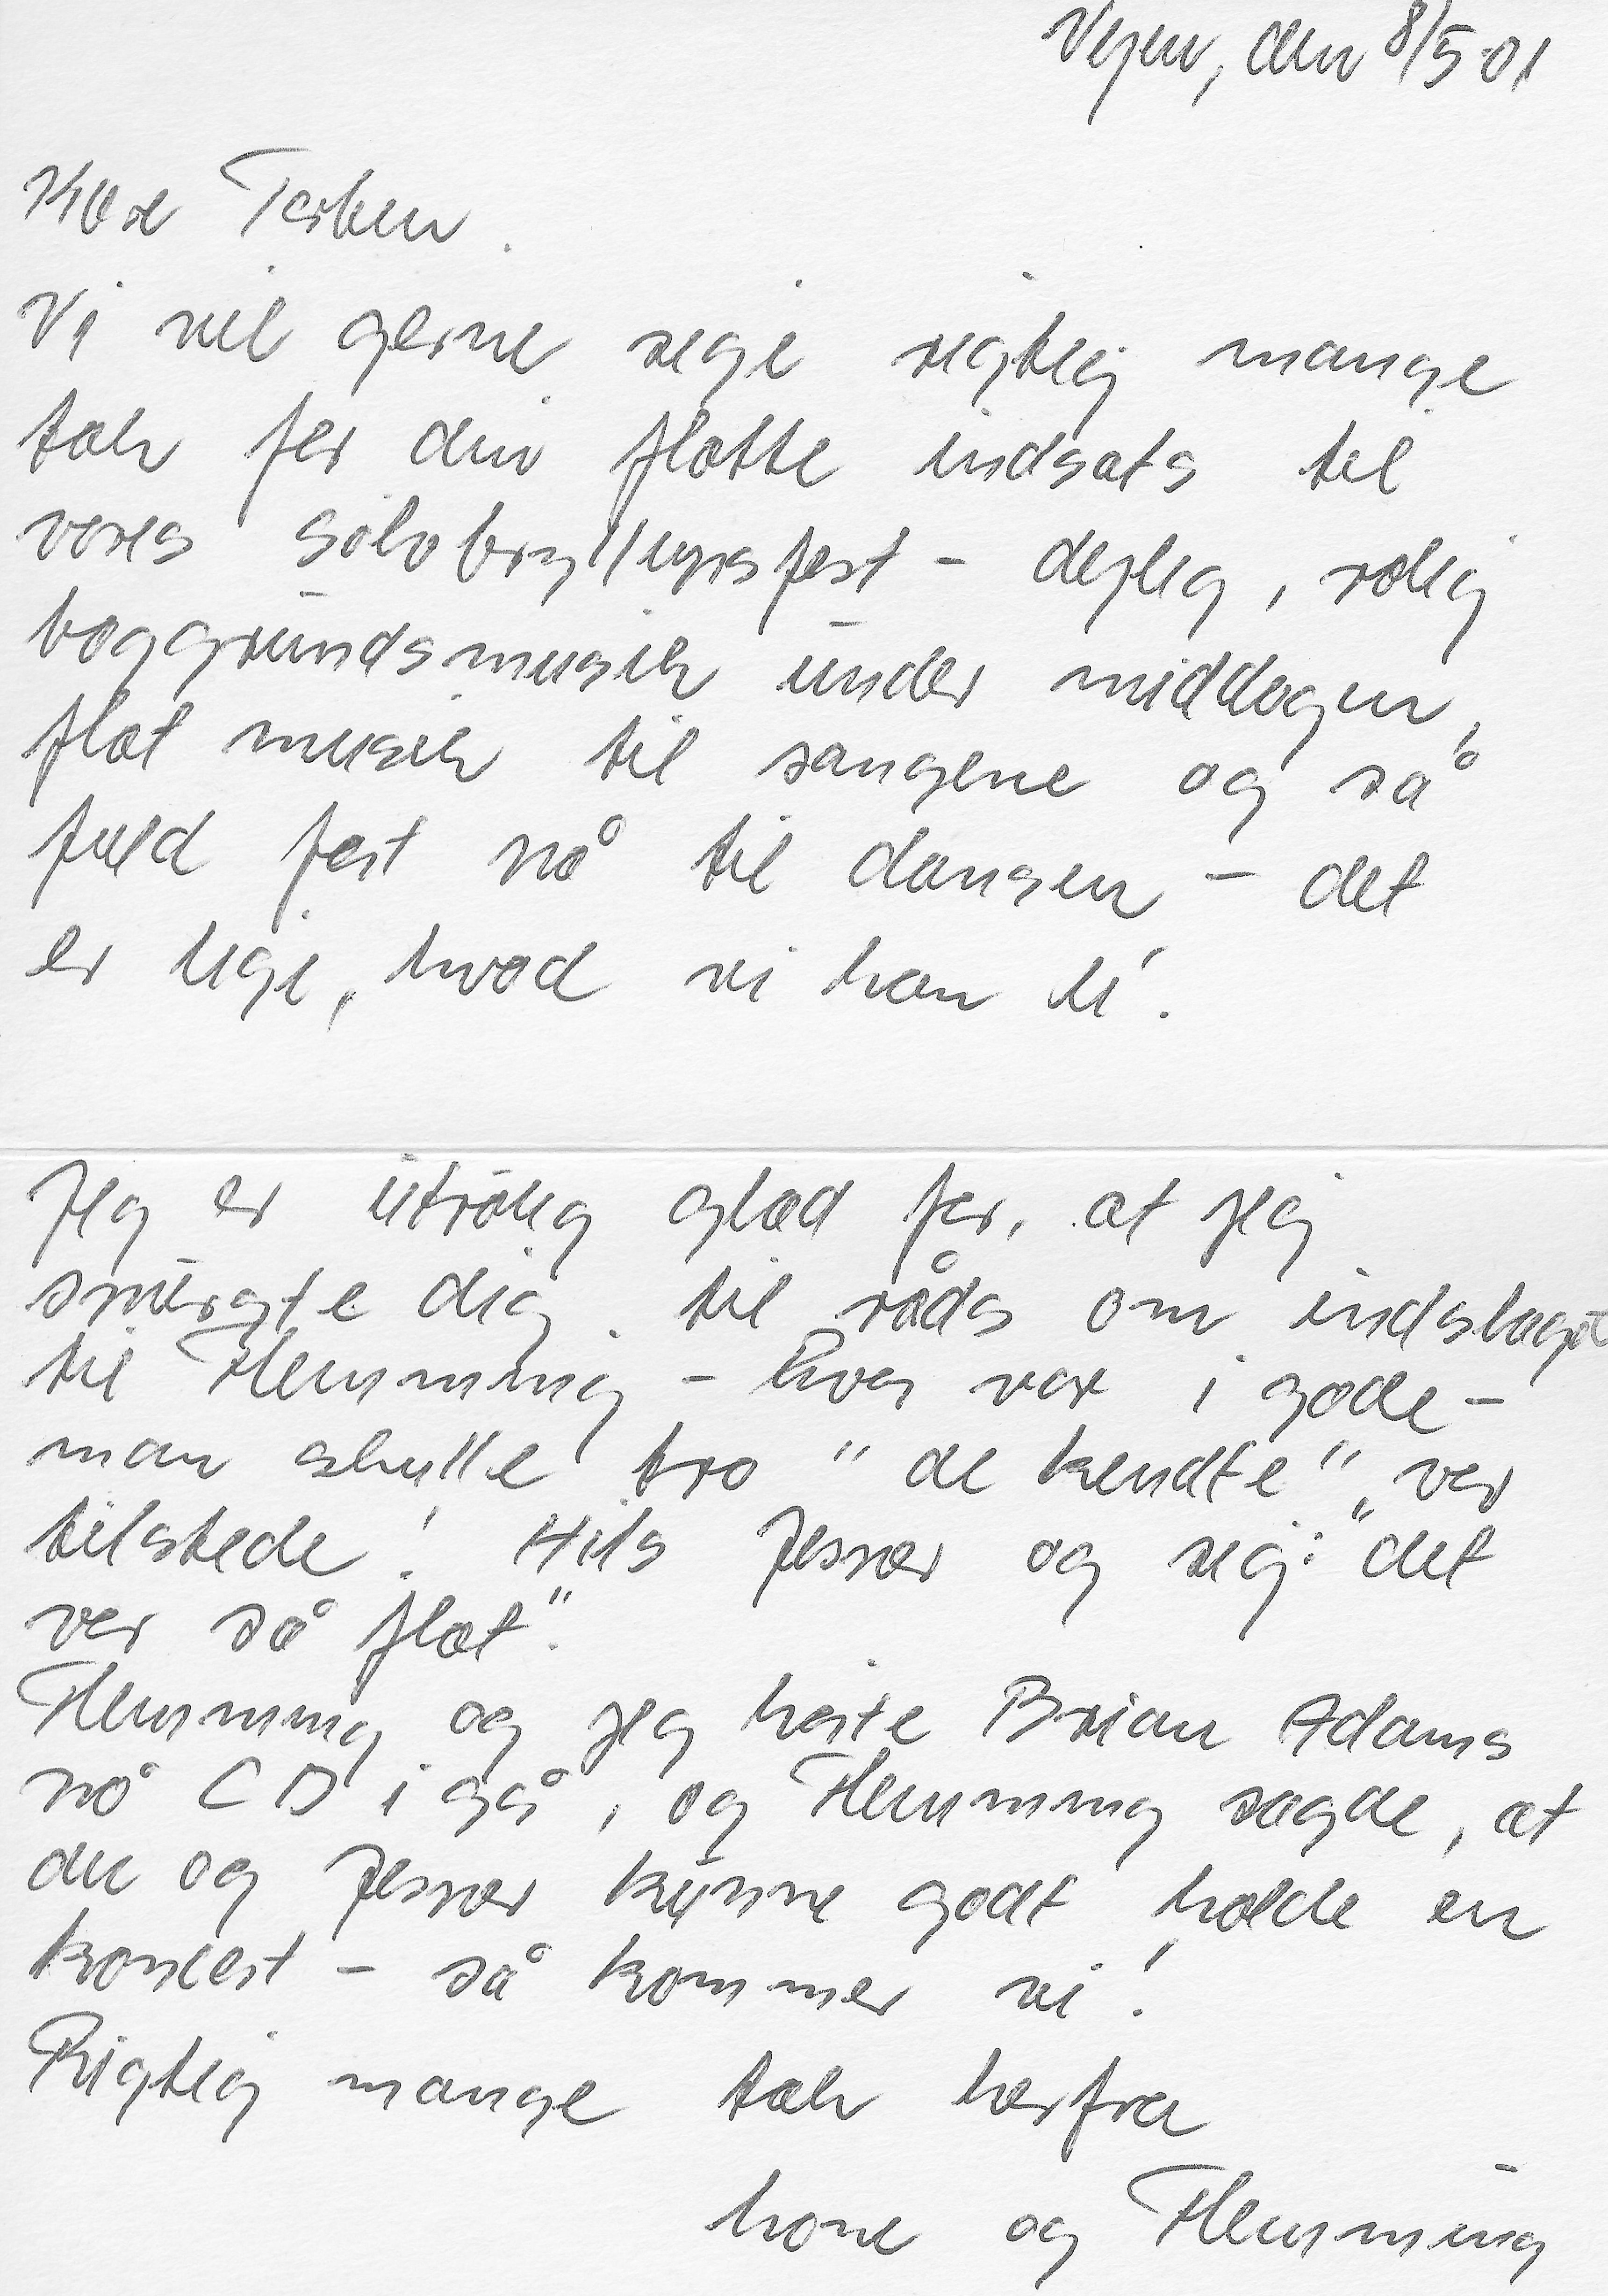 Vejen, den 8/5-01
Kære Torben.
Vi vil gerne sige rigtig mange
tak for din flotte indsats til
vores sølvbryllupsfest - dejlig, rolig
baggrundsmusik under middagen,
flot musik til sangene og så
fuld fest på til dansen - det
er lige, hvad vi kan li'.
Jeg er utrolig glad for, at jeg
spurgte dig til råds om indslaget
til Flemming - hver var i gode -
man skulle tro "de kendte" var
tilstede! Hils Jesper og sig: "det
var så flot".
Flemming og jeg hørte Brian Adams
på CD i går, og Flemming sagde, at
du og Jesper kunne godt holde en
koncert - så kommer vi!
Rigtig mange tak herfra
Lone og Flemming